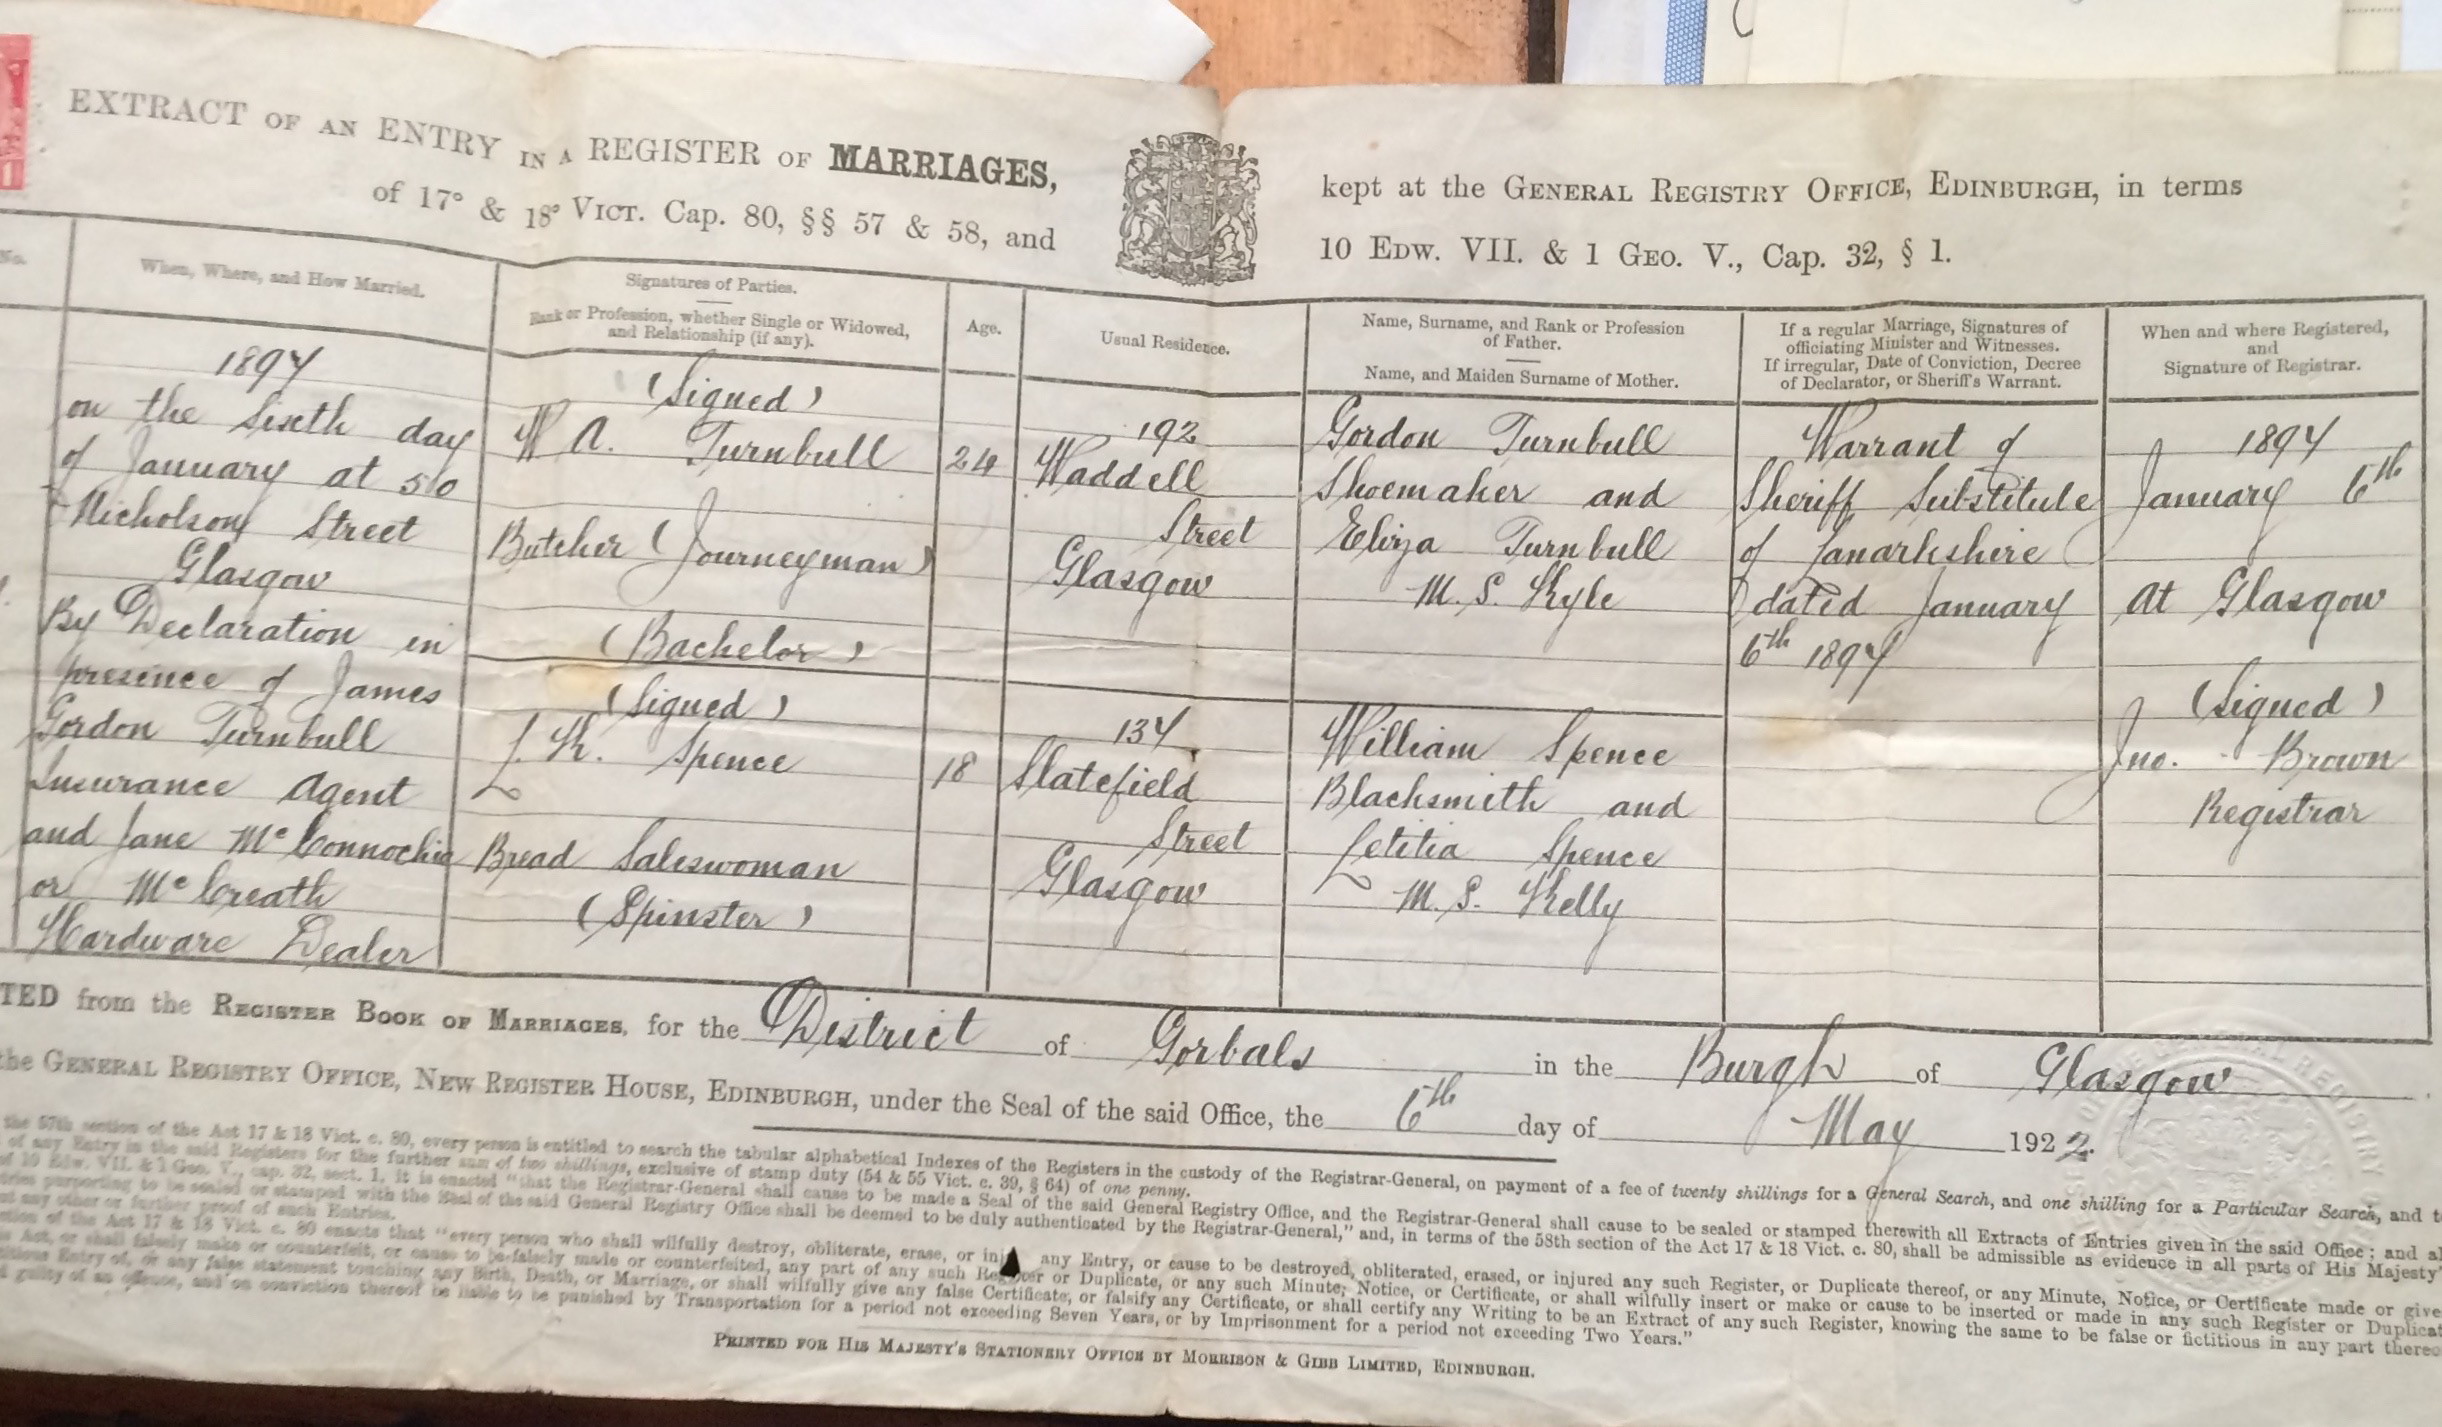 EXTRACT OF AN ENTRY IN A REGISTER OF MARRIAGES, kept at the GENERAL REGISTRY OFFICE, EDINBURGH, in terms
of 17° & 18° VICT. Cap. 80, §§ 57 & 58, and 10 EDW. VII. & 1 GEO. V., Cap. 32, § 1.
No.
When, Where, and How Married.
1897
on the sixth day
of January at 50
Nicholson Street
Glasgow
By Declaration in
presence of James
Gordon Turnbull
Insurance Agent
and Jane McConnochie
or McCreath
Hardware Dealer
Signatures of Parties.
Rank or Profession, whether Single or Widowed,
and Relationship (if any).
(Signed)
W A. Turnbull
Butcher (Journeyman)
(Bachelor)
(Signed)
L. K. Spence
Bread Saleswoman
(Spinster)
Age.
24
18
Usual Residence.
192
Waddell
Street
Glasgow
137
Slatefield
Street
Glasgow
Name, Surname, and Rank or Profession
of Father.
Name, and Maiden Surname of Mother.
Gordon Turnbull
Shoemaker and
Eliza Turnbull
M. S. Kyle
William Spence
Blacksmith and
Letitia Spence
M. S. Kelly
If a regular Marriage, Signatures of
officiating Minister and Witnesses.
If irregular, Date of Conviction, Decree
of Declarator, or Sheriff's Warrant.
Warrant of
Sheriff Substitute
of Lanarkshire
dated January
6th 1897
When and where Registered,
and
Signature of Registrar.
1897
January 6th
At Glasgow
(Signed)
Jno. Brown
Registrar
TED from the REGISTER BOOK OF MARRIAGES, for the District of Gorbals in the Burgh of Glasgow
the GENERAL REGISTRY OFFICE, NEW REGISTER HOUSE, EDINBURGH, under the Seal of the said Office, the 6th day of May 1922.
the 57th section of the Act 17 & 18 Vict. c. 80, every person is entitled to search the tabular alphabetical Indexes of the Registers in the custody of the Registrar-General, on payment of a fee of twenty shillings for a General Search, and one shilling for a Particular Search, and t
of any Entry in the said Registers for the further sum of two shillings, exclusive of stamp duty (54 & 55 Vict. c. 39, § 64) of one penny.
of 10 Edw. VII. & 1 Geo. V., cap. 32, sect. 1, it is enacted "that the Registrar-General shall cause to be made a Seal of the said General Registry Office, and the Registrar-General shall cause to be sealed or stamped therewith all Extracts of Entries given in the said Office; and al
purporting to be sealed or stamped with the Seal of the said General Registry Office shall be deemed to be duly authenticated by the Registrar-General," and, in terms of the 58th section of the Act 17 & 18 Vict. c. 80, shall be admissible as evidence in all parts of His Majesty'
any other or further proof of such Entries.
of the Act 17 & 18 Vict. c. 80 enacts that "every person who shall wilfully destroy, obliterate, erase, or inj any Entry, or cause to be destroyed, obliterated, erased, or injured any such Register, or Duplicate thereof, or any Minute, Notice, or Certificate made or give
Act, or shall falsely make or counterfeit, or cause to be falsely made or counterfeited, any part of any such Register or Duplicate, or any such Minute, Notice, or Certificate, or shall wilfully insert or make or cause to be inserted or made in any such Register or Duplicat
Entry of, or any false statement touching any Birth, Death, or Marriage, or shall wilfully give any false Certificate, or falsify any Certificate, or shall certify any Writing to be an Extract of any such Register, knowing the same to be false or fictitious in any part thereo
guilty of an offence, and on conviction thereof be liable to be punished by Transportation for a period not exceeding Seven Years, or by Imprisonment for a period not exceeding Two Years."
PRINTED FOR HIS MAJESTY'S STATIONERY OFFICE BY MORRISON & GIBB LIMITED, EDINBURGH.